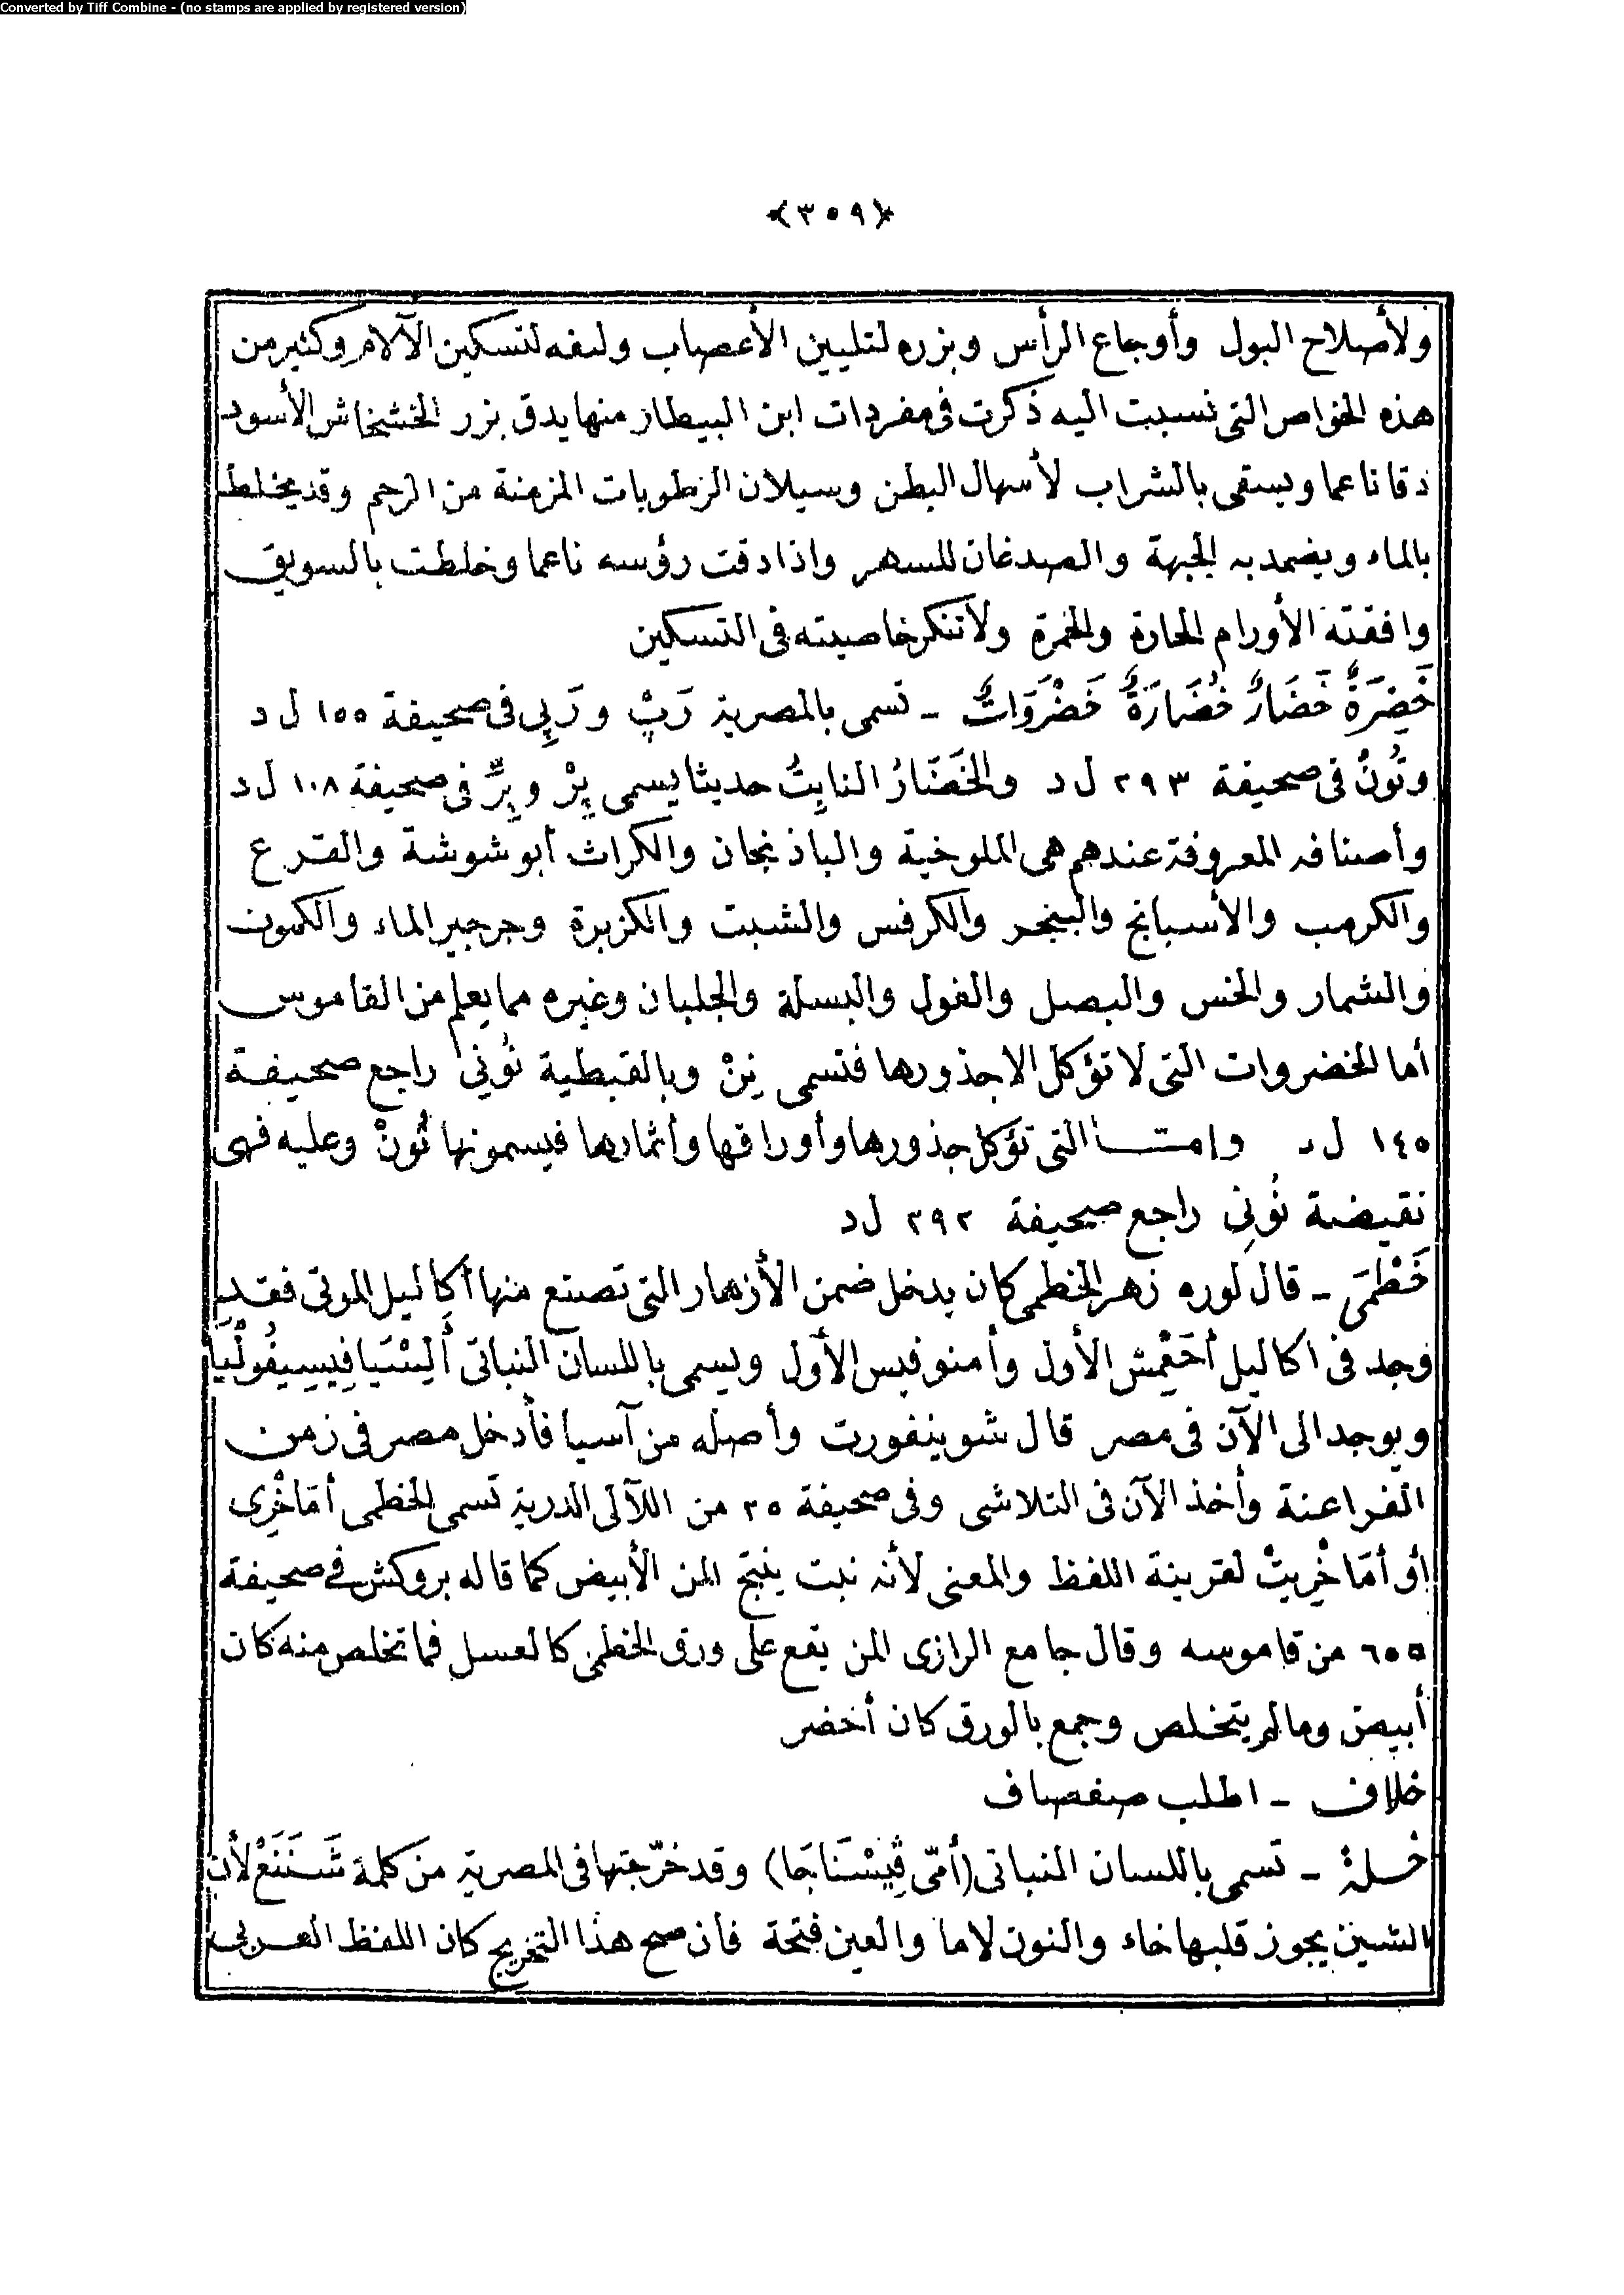 Converted by Tiff Combine - (no stamps are applied by registered version)
﴿٣٥٩﴾
ولأصلاح البول وأوجاع الرأس وبزره لتليين الأعصاب ولنفه لتسكين الآلام وكثير من
هذه الخواص التى نسبت اليه ذكرت فى مفردات ابن البيطار منها يدق بزر الخشخاش الأسود
دقا ناعما ويسقى بالشراب لأسهال البطن وسيلان الرطوبات المزمنة من الرحم وقد يخلط
بالماء ويضمد به الجبهة والصدغان للسهر واذا دقت رؤسه ناعما وخلطت بالسويق
وافقته الأورام الحارة والحمرة ولا تنكر خاصيته فى التسكين
خَضِرَةٌ خَضَارٌ خُضَارَةٌ خَضْرَوَاتٌ - تسمى بالمصرية رَبْ ورَبِى فى صحيفة ١٥٥ ل د
وتُونْ فى صحيفة ٢٩٣ ل د والخَضَارُ النابِتُ حديثا يسمى پِرْ وپِرِّ فى صحيفة ١٠٨ ل د
وأصنافه المعروفة عندهم هى الملوخية والباذنجان والكراث أبو شوشة والقرع
والكرمب والأسبانخ والبنجر والكرفس والشبت والكزبرة وجرجير الماء والكمون
والشمار والخس والبصل والفول والبسلة والجلبان وغيره مما يعلم من القاموس
أما الخضروات التى لا تؤكل الا جذورها فتسمى نِنْ وبالقبطية نُونِى راجع صحيفة
١٤٥ ل د وإمتــا التى تؤكل جذورها وأوراقها وأثمارها فيسمونها تُونْ وعليه فهى
نقيضة نُونِى راجع صحيفة ٢٩٢ ل د
خَطْمَى - قال لوره زهر الخطمى كان يدخل ضمن الأزهار التى تصنع منها أكاليل الموتى فقد
وجد فى اكاليل أحَعْمِسْ الأول وأمنوفيس الأول ويسمى باللسان النباتى أَلِسْيَافِيسِيفُولْيَا
ويوجد الى الآن فى مصر قال شوينفورت وأصله من آسيا فأدخل مصر فى زمن
الفراعنة وأخذ الآن فى التلاشى وفى صحيفة ٢٥ من اللآلى الدرية تسمى الخطمى أمَاخْرِى
أوأمَاخْرِيتْ لقرينة اللفظ والمعنى لأنه نبت ينتج المن الأبيض كما قاله بروكش فى صحيفة
٦٥٥ من قاموسه وقال جامع الرازى المن يقع على ورق الخطمى كالعسل فما تخلص منه كان
أبيض وما لم يتخلص وجمع بالورق كان أخضر
خلاف - اطلب صفصاف
خلة - تسمى باللسان النباتى (أمّى ڤِيسْنَاجَا) وقد خرّجتها فى المصرية من كلمة شَنَنَعْ لأن
الشين يجوز قلبها خاء والنون لاما والعين فتحة فأن صح هذا التخريج كان اللفظ العربى